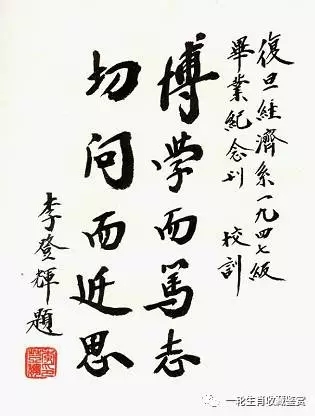 復旦經濟系一九四七級
畢業紀念刊 校訓
博學而篤志
切問而近思
李登輝題
一轮生肖收藏鉴赏